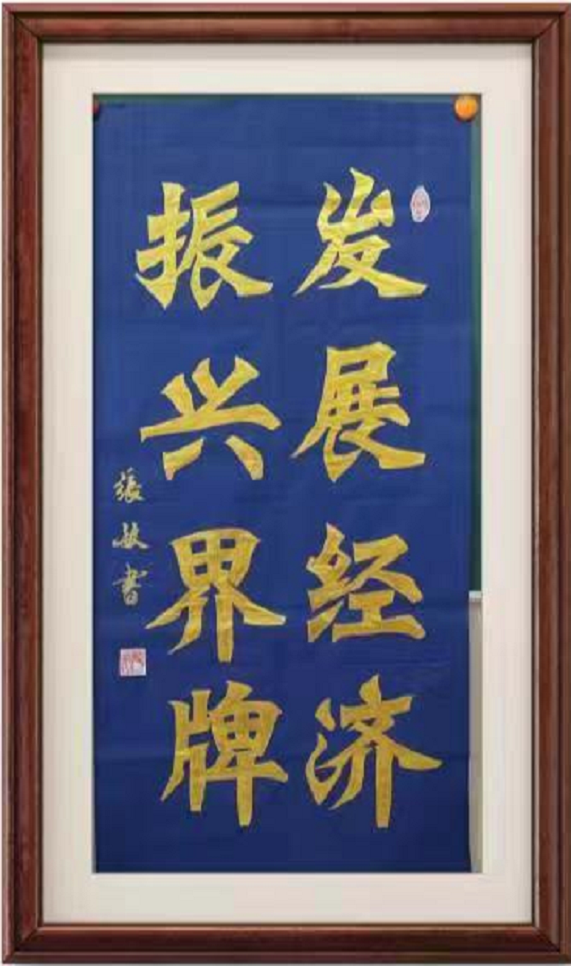 发展经济
振兴界牌
張敏書